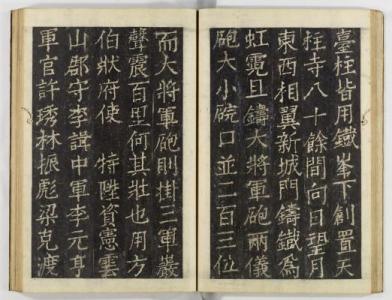 臺柱皆用鐵峯下創置天
柱寺八十餘間向日望月
東西相翼新城門鑄鐵為
虹霓且鑄大將軍砲兩儀
砲大小碗口並二百三位
而大將軍砲則掛三軍嚴
聲震百里何其壯也用方
伯狀府使 特陞資憲雲
山郡守李諱中軍李元亨
軍官許琇林振彪梁克渡